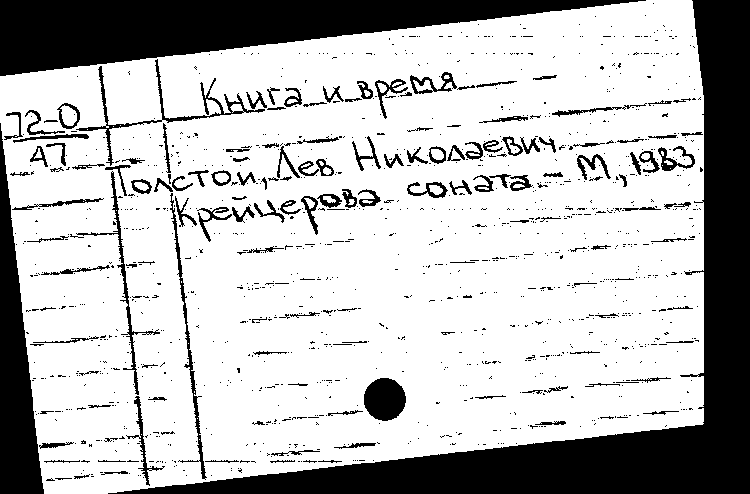 Книга и время
72-0
47
Толстой, Лев Николаевич
Крейцерова соната - М, 1983.